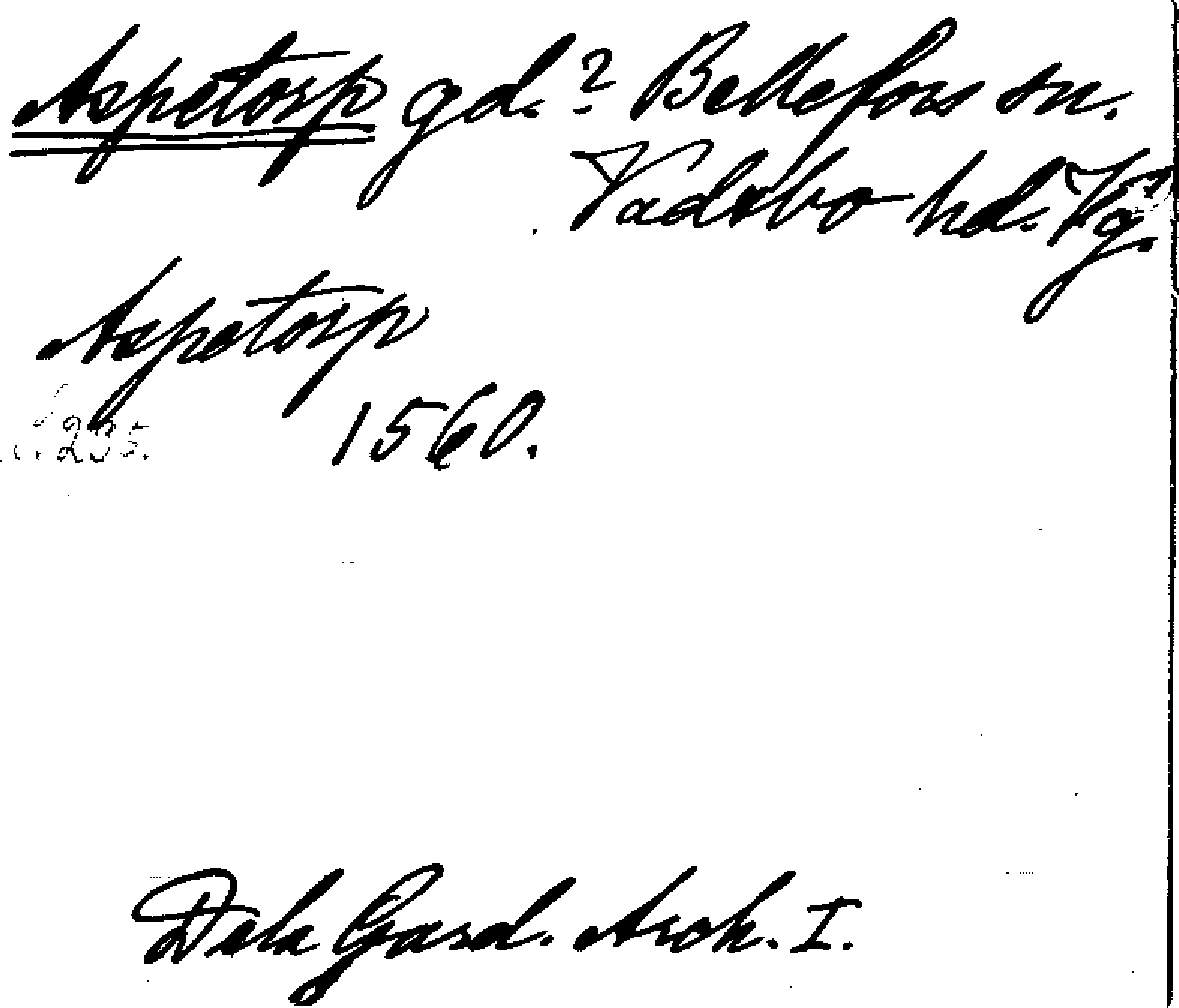 Aspetorp gd.? Bellefors sn.
Vadsbo hd. Vg.
Aspetorp
1560.
235.
Dela Gard. Arch. I.